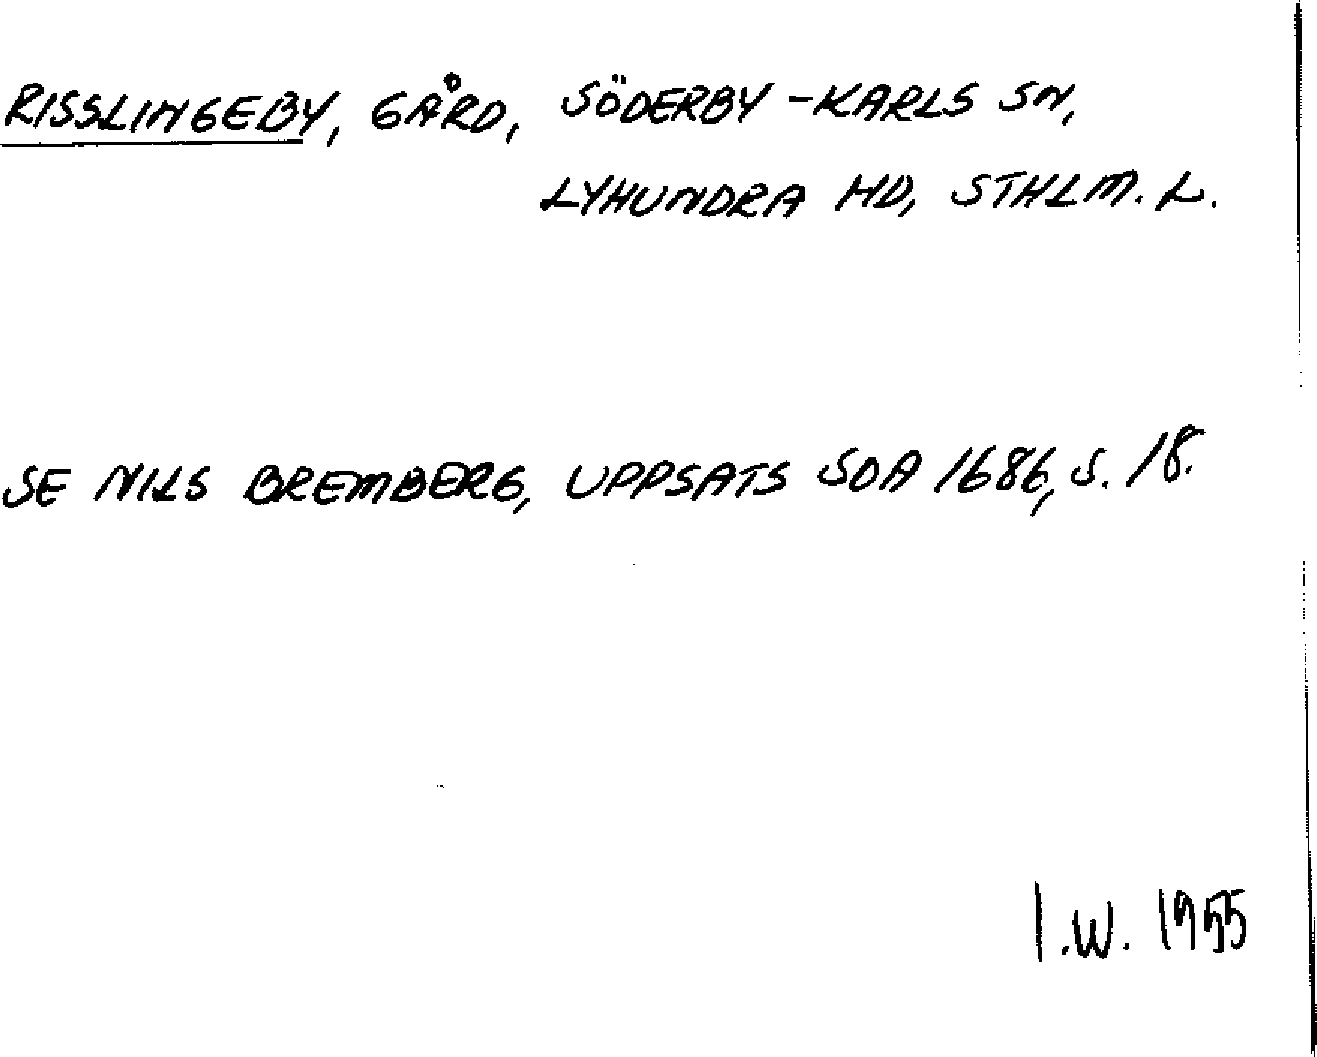 RISSLINGEBY, GÅRD, SÖDERBY-KARLS SN,
LYHUNDRA HD, STHLM. L.
SE NILS BREMBERG, UPPSATS SOA 1686, S. 18.
I.W. 1955